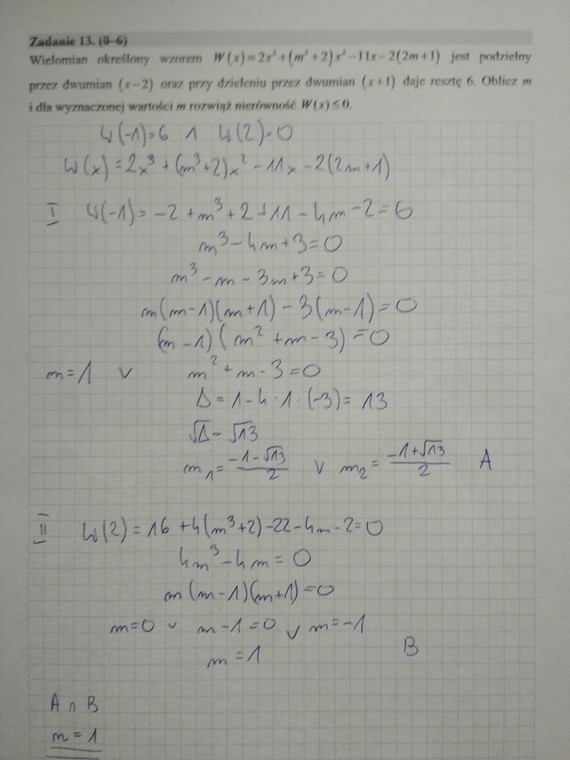 Zadanie 13. (0–6)
Wielomian określony wzorem W(x)=2x³+(m³+2)x²−11x−2(2m+1) jest podzielny
przez dwumian (x−2) oraz przy dzieleniu przez dwumian (x+1) daje resztę 6. Oblicz m
i dla wyznaczonej wartości m rozwiąż nierówność W(x)≤0.
W(-1)=6 ∧ W(2)=0
W(x) = 2x³ + (m³+2)x² − 11x − 2(2m+1)
I W(-1) = −2 + m³ + 2 + 11 − 4m − 2 = 6
m³ − 4m + 3 = 0
m³ − m − 3m + 3 = 0
m(m−1)(m+1) − 3(m−1) = 0
(m−1)(m² + m − 3) = 0
m = 1 ∨ m² + m − 3 = 0
Δ = 1 − 4 · 1 · (−3) = 13
√Δ = √13
m₁ = (−1−√13)/2 ∨ m₂ = (−1+√13)/2 A
II W(2) = 16 + 4(m³+2) − 22 − 4m − 2 = 0
4m³ − 4m = 0
m(m−1)(m+1) = 0
m=0 ∨ m−1=0 ∨ m=−1
m = 1 B
A ∩ B
m = 1